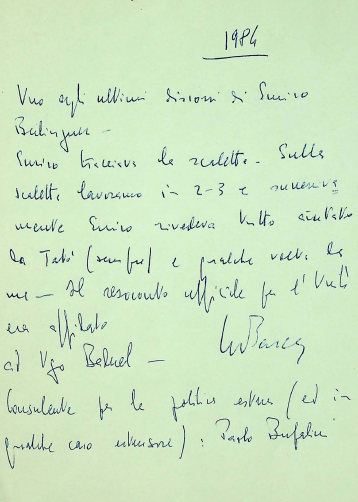 1984
Uno degli ultimi discorsi di Enrico
Berlinguer –
Enrico tracciava la scaletta. Sulla
scaletta lavoravamo in 2-3 e successiva
mente Enrico rivedeva tutto aiutato
da Tatò (sempre) e qualche volta da
me – Il resoconto ufficiale per l'Unità
era affidato
ad Ugo Baduel –
Consulente per la politica estera (ed in
qualche caso estensore): Paolo Bufalini